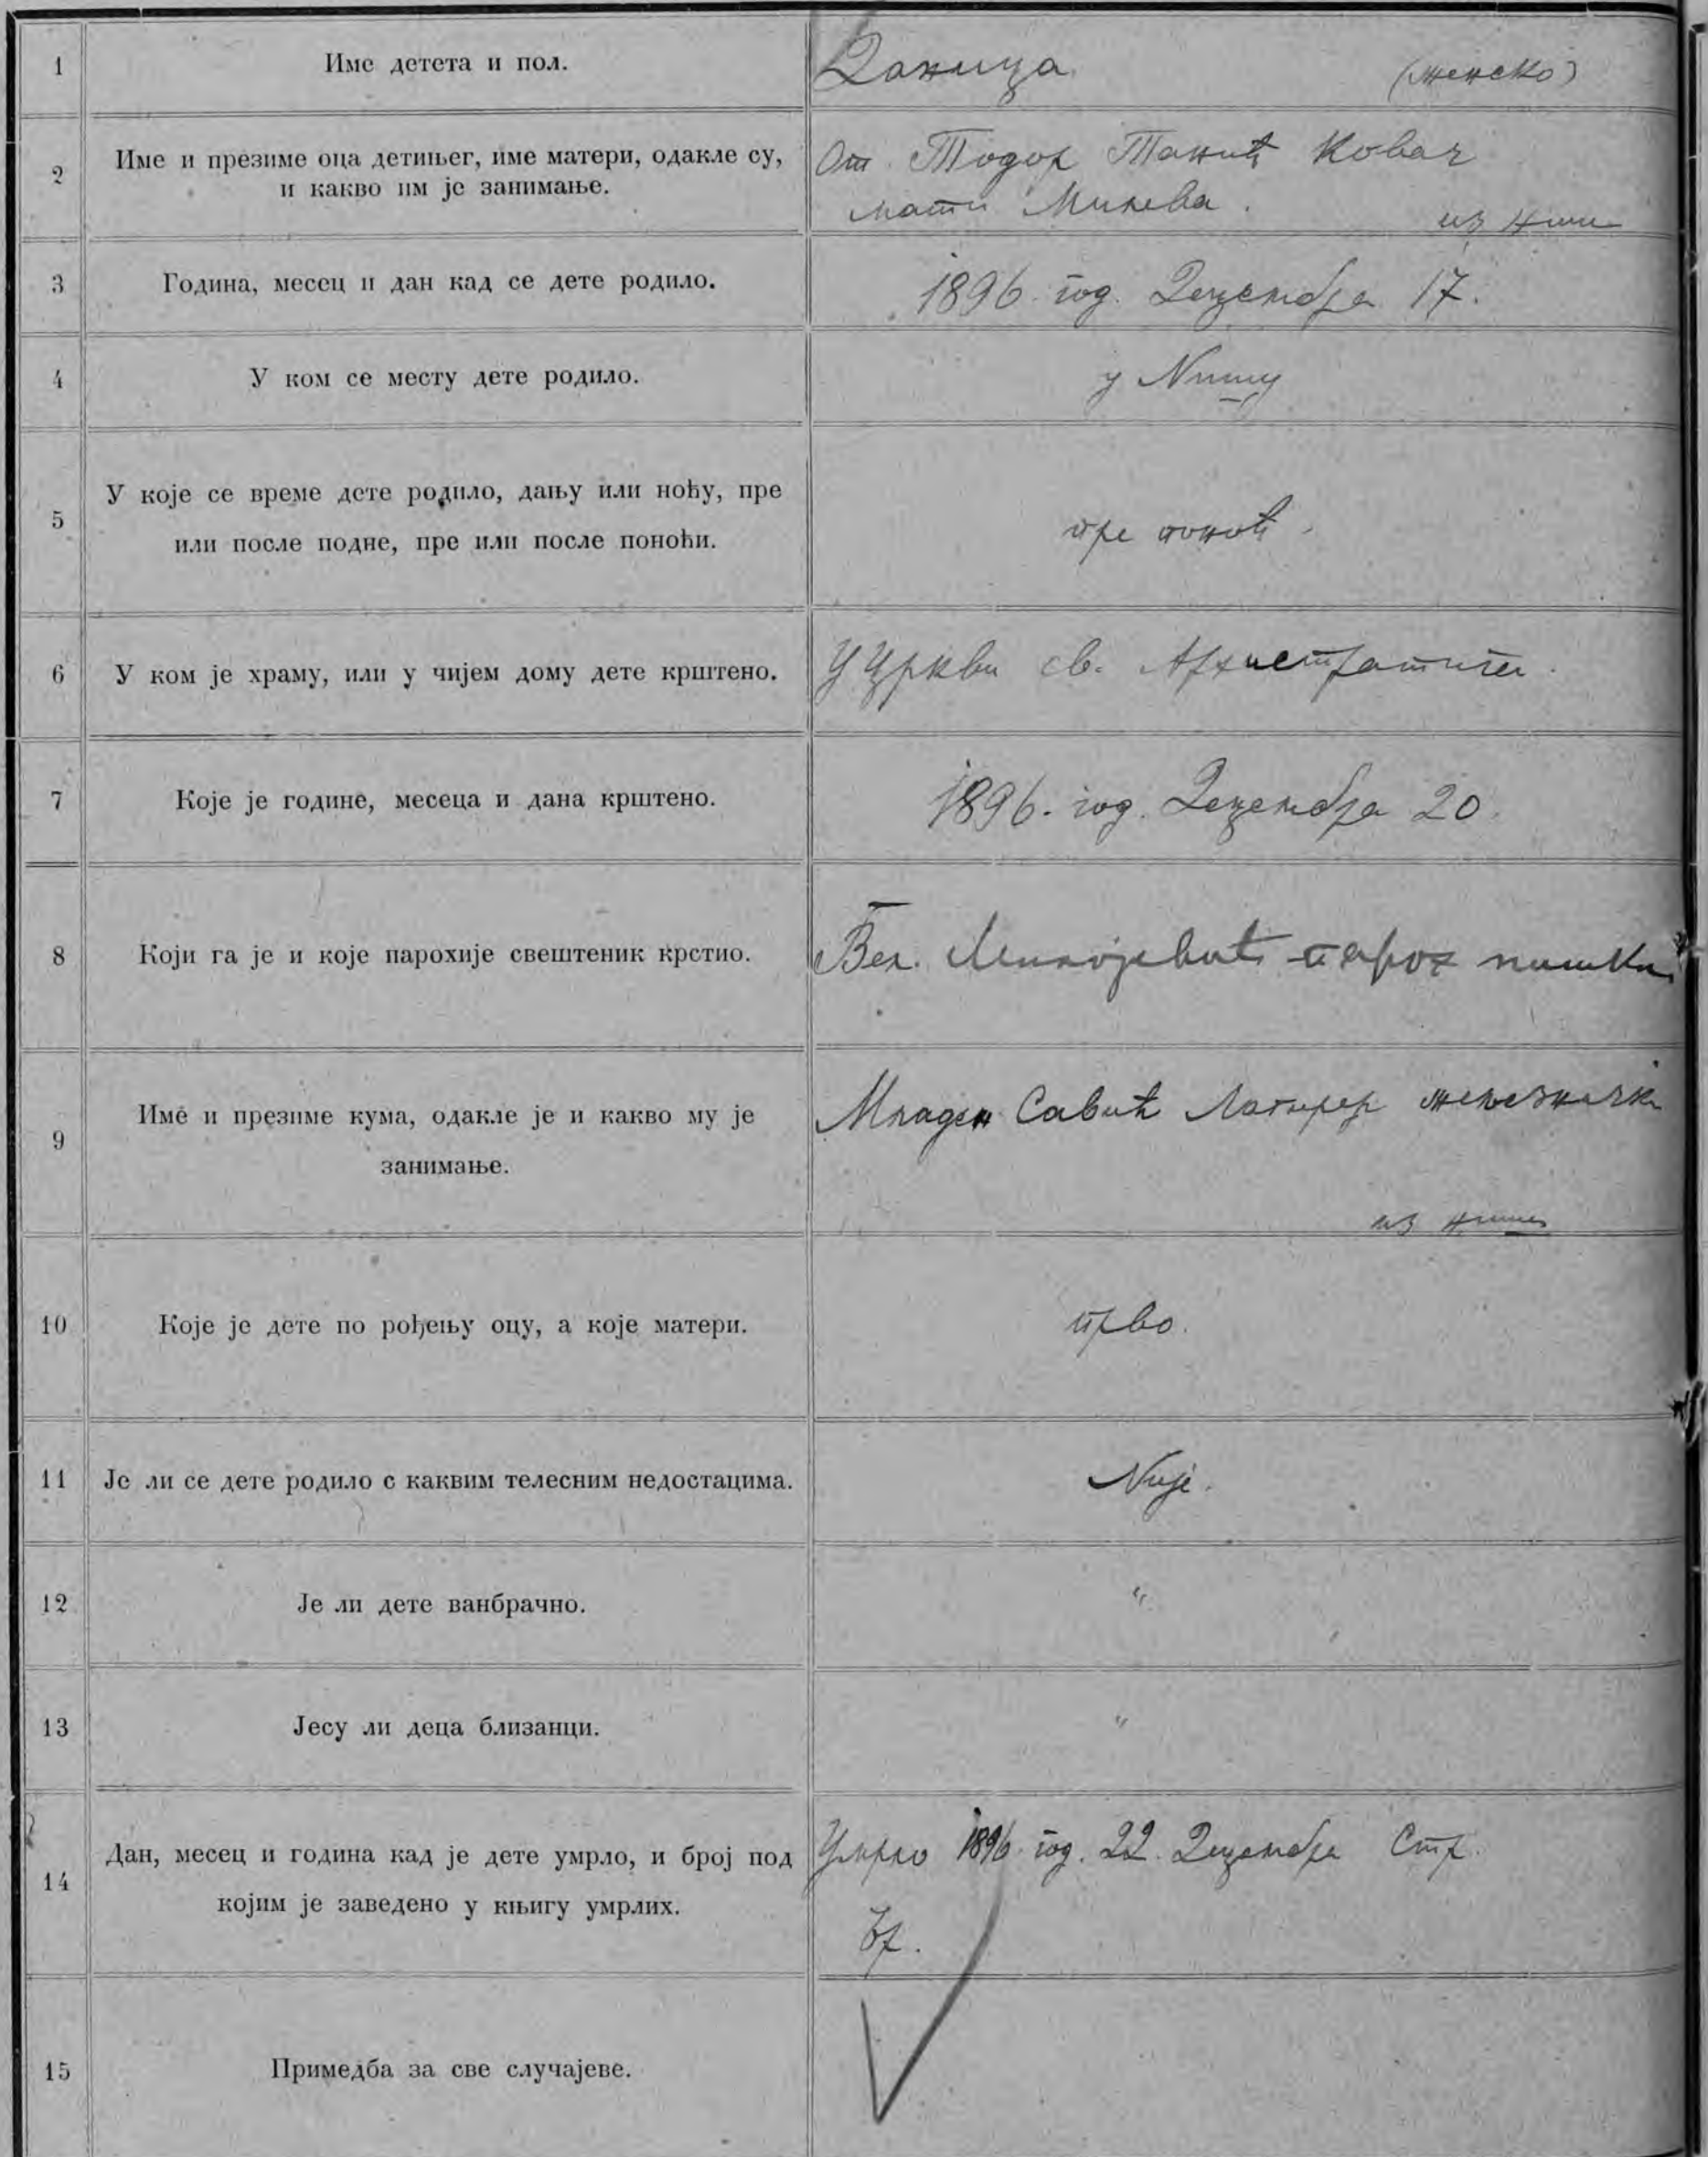 1 Име детета и пол. Даница (женско)
2 Име и презиме оца детињег, име матери, одакле су, и какво им је занимање.
От. Тодор Танић Ковач
мати Милева. из Ниша
3 Година, месец и дан кад се дете родило. 1896. год. Децембра 17.
4 У ком се месту дете родило. у Нишу
5 У које се време дете родило, дању или ноћу, пре
или после подне, пре или после поноћи. пре поноћ.
6 У ком је храму, или у чијем дому дете крштено. У Цркви св. Архистратига.
7 Које је године, месеца и дана крштено. 1896. год. Децембра 20.
8 Који га је и које парохије свештеник крстио. Вел. парох нишки
9 Име и презиме кума, одакле је и какво му је
занимање.
Младен Савић
из Ниша
10 Које је дете по рођењу оцу, а које матери. прво.
11 Је ли се дете родило с каквим телесним недостацима. Није.
12 Је ли дете ванбрачно. "
13 Јесу ли деца близанци. "
14 Дан, месец и година кад је дете умрло, и број под
којим је заведено у књигу умрлих.
Умрло 1896. год. 22. Децембра Стр.
Бр.
15 Примедба за све случајеве.